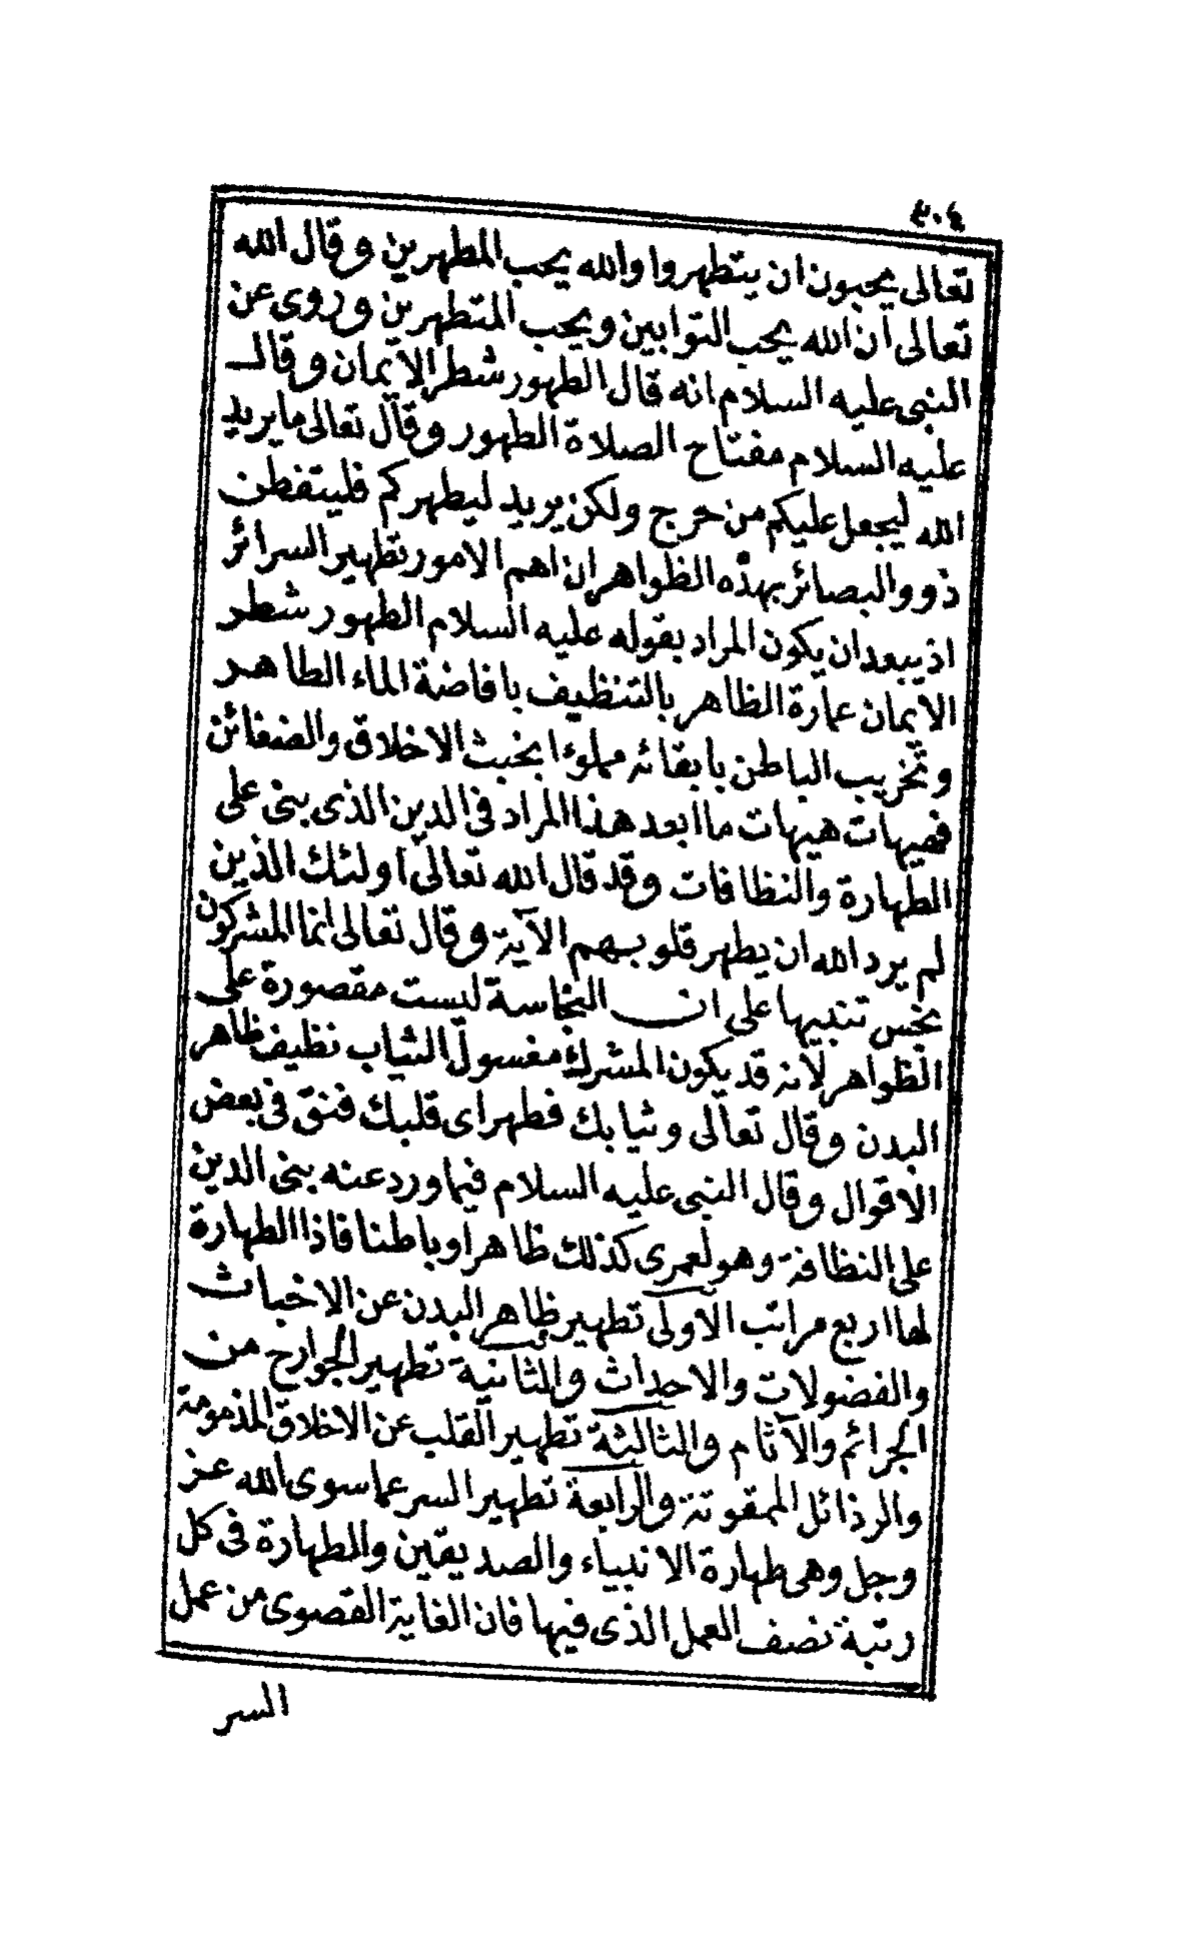 ٣٠٤
تعالى يحبون ان يتطهروا والله يحب المطهرين وقال الله
تعالى ان الله يحب التوابين ويحب المتطهرين وروى عن
النبى عليه السلام انه قال الطهور شطر الايمان وقال
عليه السلام مفتاح الصلاة الطهور وقال تعالى ما يريد
الله ليجعل عليكم من حرج ولكن يريد ليطهركم فليتفطن
ذووالبصائر بهذه الظواهر ان اهم الامور تطهير السرائر
اذ يبعد ان يكون المراد بقوله عليه السلام الطهور شطر
الايمان عمارة الظاهر بالتنظيف بافاضة الماء الطاهر
وتخريب الباطن بابقائه مملوءا بخبث الاخلاق والضغائن
فهيهات هيهات ما ابعد هذا المراد فى الدين الذى بنى على
الطهارة والنظافات وقد قال الله تعالى اولئك الذين
لم يرد الله ان يطهر قلوبهم الآية وقال تعالى انما المشركون
نجس تنبيها على ان النجاسة ليست مقصورة على
الظواهر لانه قد يكون المشرك مغسول الثياب نظيف ظاهر
البدن وقال تعالى وثيابك فطهر اى قلبك فنق فى بعض
الاقوال وقال النبى عليه السلام فيما ورد عنه بنى الدين
على النظافة وهو لعمرى كذلك ظاهرا وباطنا فاذا الطهارة
لها اربع مراتب الاولى تطهير ظاهر البدن عن الاخباث
والفضولات والاحداث والثانية تطهير الجوارح من
الجرائم والآثام والثالثة تطهير القلب عن الاخلاق المذمومة
والرذائل الممقوتة والرابعة تطهير السر عما سوى الله عز
وجل وهى طهارة الانبياء والصديقين والطهارة فى كل
رتبة نصف العمل الذى فيها فان الغاية القصوى من عمل
السر